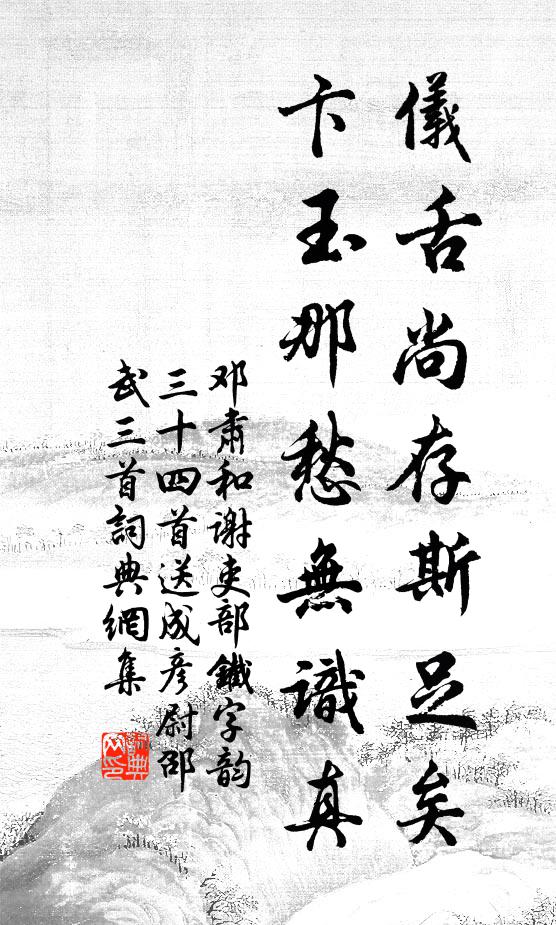 儀舌尚存斯足矣
卞玉那愁無識真
邓肅和谢吏部鐵字韵
三十四首送成彦尉邵
武三首詞典網集